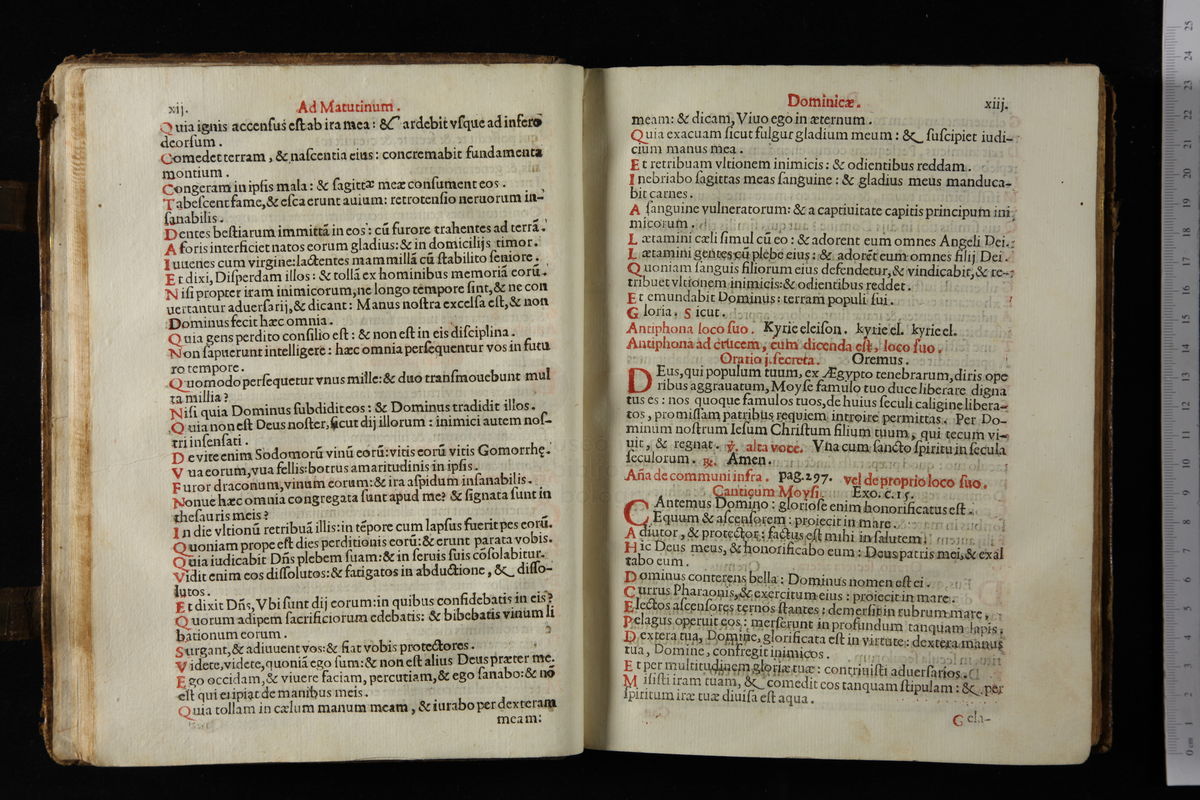 xij.
Ad Matutinum.
Quia ignis accensus est ab ira mea: & ardebit vsque ad infero
deorsum.
Comedet terram, & nascentia eius: concremabit fundamenta
montium.
Congeram in ipsis mala: & sagittæ meæ consument eos.
Tabescent fame, & esca erunt auium: retrotensio neruorum in-
sanabilis.
Dentes bestiarum immittā in eos: cū furore trahentes ad terrā.
A foris interficiet natos eorum gladius: & in domicilijs timor.
Iuuenes cum virgine: lactentes mammillā cū stabilito seniore.
Et dixi, Disperdam illos: & tollā ex hominibus memoriā eorū.
Nisi propter iram inimicorum, ne longo tempore sint, & ne con
uertantur aduersarij, & dicant: Manus nostra excelsa est, & non
Dominus fecit hæc omnia.
Quia gens perdito consilio est: & non est in eis disciplina.
Non sapuerunt intelligere: hæc omnia persequentur vos in futu
ro tempore.
Quomodo persequetur vnus mille: & duo transmouebunt mul
ta millia?
Nisi quia Dominus subdidit eos: & Dominus tradidit illos.
Quia non est Deus noster, sicut dij illorum: inimici autem nos-
tri insensati.
De vite enim Sodomorū vinū eorū: vitis eorū vitis Gomorrhę.
Vua eorum, vua fellis: botrus amaritudinis in ipsis.
Furor draconum, vinum eorum: & ira aspidum insanabilis.
Nonue hæc omnia congregata sunt apud me? & signata sunt in
thesauris meis?
In die vltionū retribuā illis: in tēpore cum lapsus fuerit pes eorū.
Quoniam prope est dies perditionis eorū: & erunt parata vobis.
Quia iudicabit Dn̄s plebem suam: & in seruis suis cōsolabitur.
Vidit enim eos dissolutos: & fatigatos in abductione, & disso-
lutos.
Et dixit Dn̄s, Vbi sunt dij eorum: in quibus confidebatis in eis?
Quorum adipem sacrificiorum edebatis: & bibebatis vinum li
bationum eorum.
Surgant, & adiuuent vos: & fiat vobis protectores.
Videte, videte, quoniā ego sum: & non est alius Deus præter me.
Ego occidam, & viuere faciam, percutiam, & ego sanabo: & nō
est qui eripiat de manibus meis.
Quia tollam in cælum manum meam, & iurabo per dexteram
meam:
Dominicæ.
xiij.
meam: & dicam, Viuo ego in æternum.
Quia exacuam sicut fulgur gladium meum: & suscipiet iudi-
cium manus mea.
Et retribuam vltionem inimicis: & odientibus reddam.
Inebriabo sagittas meas sanguine: & gladius meus manduca-
bit carnes.
A sanguine vulneratorum: & a captiuitate capitis principum ini
micorum.
Lætamini cæli simul cū eo: & adorent eum omnes Angeli Dei.
Lætamini gentes cū plebe eius: & adorēt eum omnes filij Dei.
Quoniam sanguis filiorum eius defendetur, & vindicabit, & re-
tribuet vltionem inimicis: & odientibus reddet.
Et emundabit Dominus: terram populi sui.
Gloria. Sicut.
Antiphona loco suo. Kyrie eleison. kyrie el. kyrie el.
Antiphona ad crucem, cum dicenda est, loco suo.
Oratio j. secreta. Oremus.
DEus, qui populum tuum, ex Ægypto tenebrarum, diris ope
ribus aggrauatum, Moyse famulo tuo duce liberare digna
tus es: nos quoque famulos tuos, de huius seculi caligine libera-
tos, promissam patribus requiem introire permittas. Per Do-
minum nostrum Iesum Christum filium tuum, qui tecum vi-
uit, & regnat. ℣. alta voce. Vna cum sancto spiritu in secula
seculorum. ℟. Amen.
Aña de communi infra. pag. 297. vel de proprio loco suo.
Canticum Moysi. Exo. c. 15.
CAntemus Domino: gloriose enim honorificatus est.
Equum & ascensorem: proiecit in mare.
Adiutor, & protector: factus est mihi in salutem.
Hic Deus meus, & honorificabo eum: Deus patris mei, & exal
tabo eum.
Dominus conterens bella: Dominus nomen est ei.
Currus Pharaonis, & exercitum eius: proiecit in mare.
Electos ascensores ternos stantes: demersit in rubrum mare,
Pelagus operuit eos: merserunt in profundum tanquam lapis.
Dextera tua, Domine, glorificata est in virtute: dextera manus
tua, Domine, confregit inimicos.
Et per multitudinem gloriæ tuæ: contriuisti aduersarios.
Misisti iram tuam, & comedit eos tanquam stipulam: & per
spiritum iræ tuæ diuisa est aqua.
Gela-